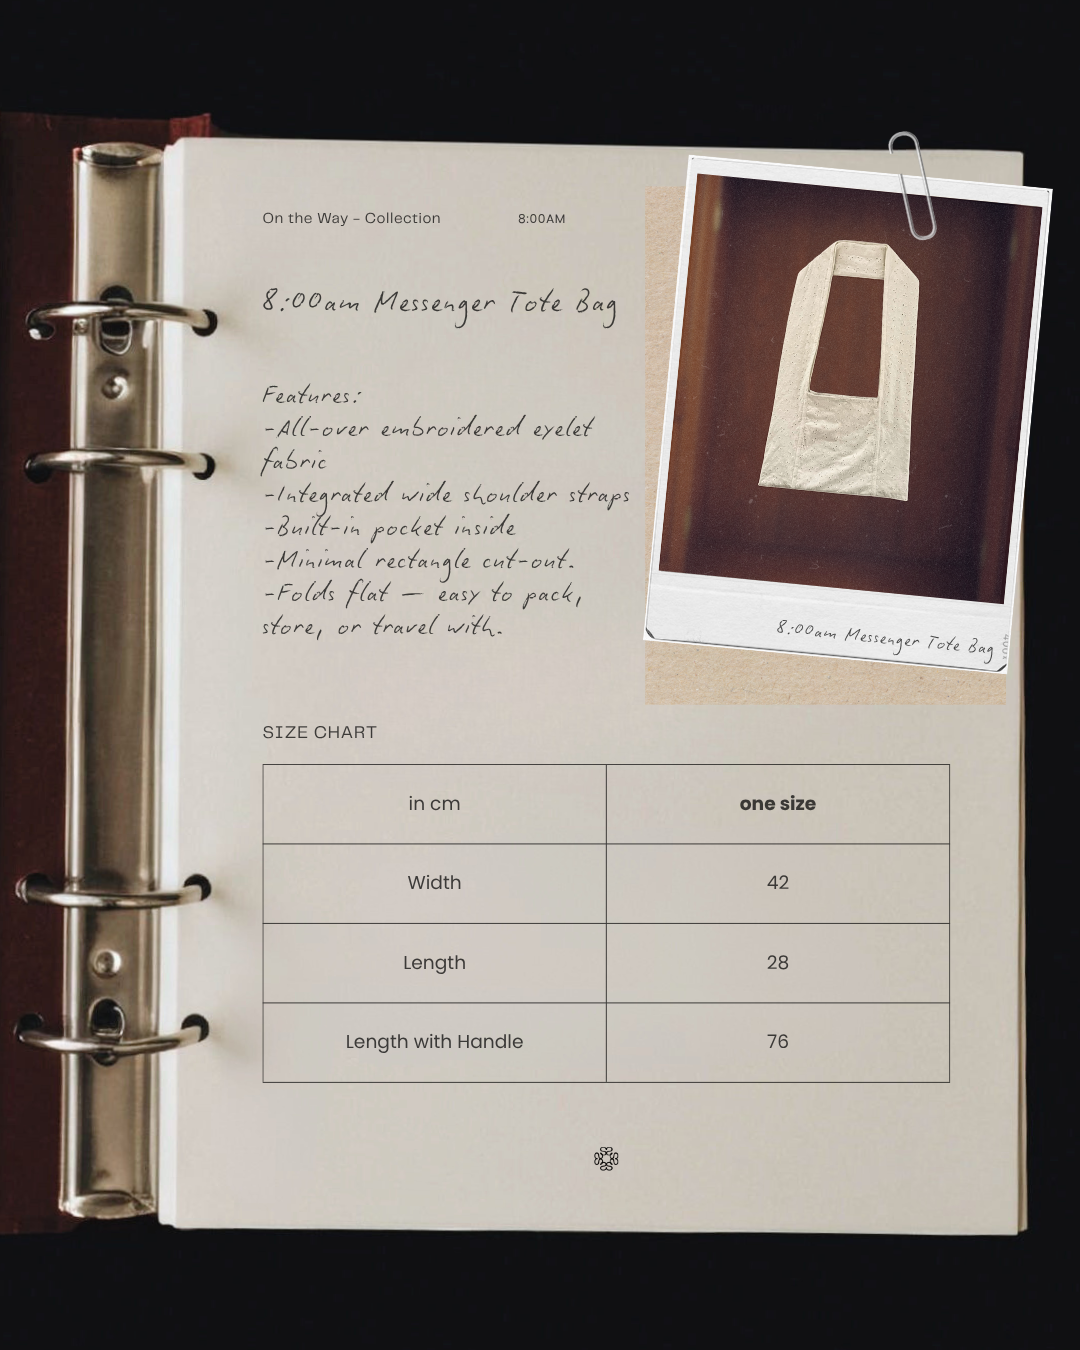 On the Way – Collection
8:00AM
8:00am Messenger Tote Bag
Features:
-All-over embroidered eyelet
fabric
-Integrated wide shoulder straps
-Built-in pocket inside
-Minimal rectangle cut-out.
-Folds flat — easy to pack,
store, or travel with.
8:00am Messenger Tote Bag
SIZE CHART
in cm
one size
Width
42
Length
28
Length with Handle
76